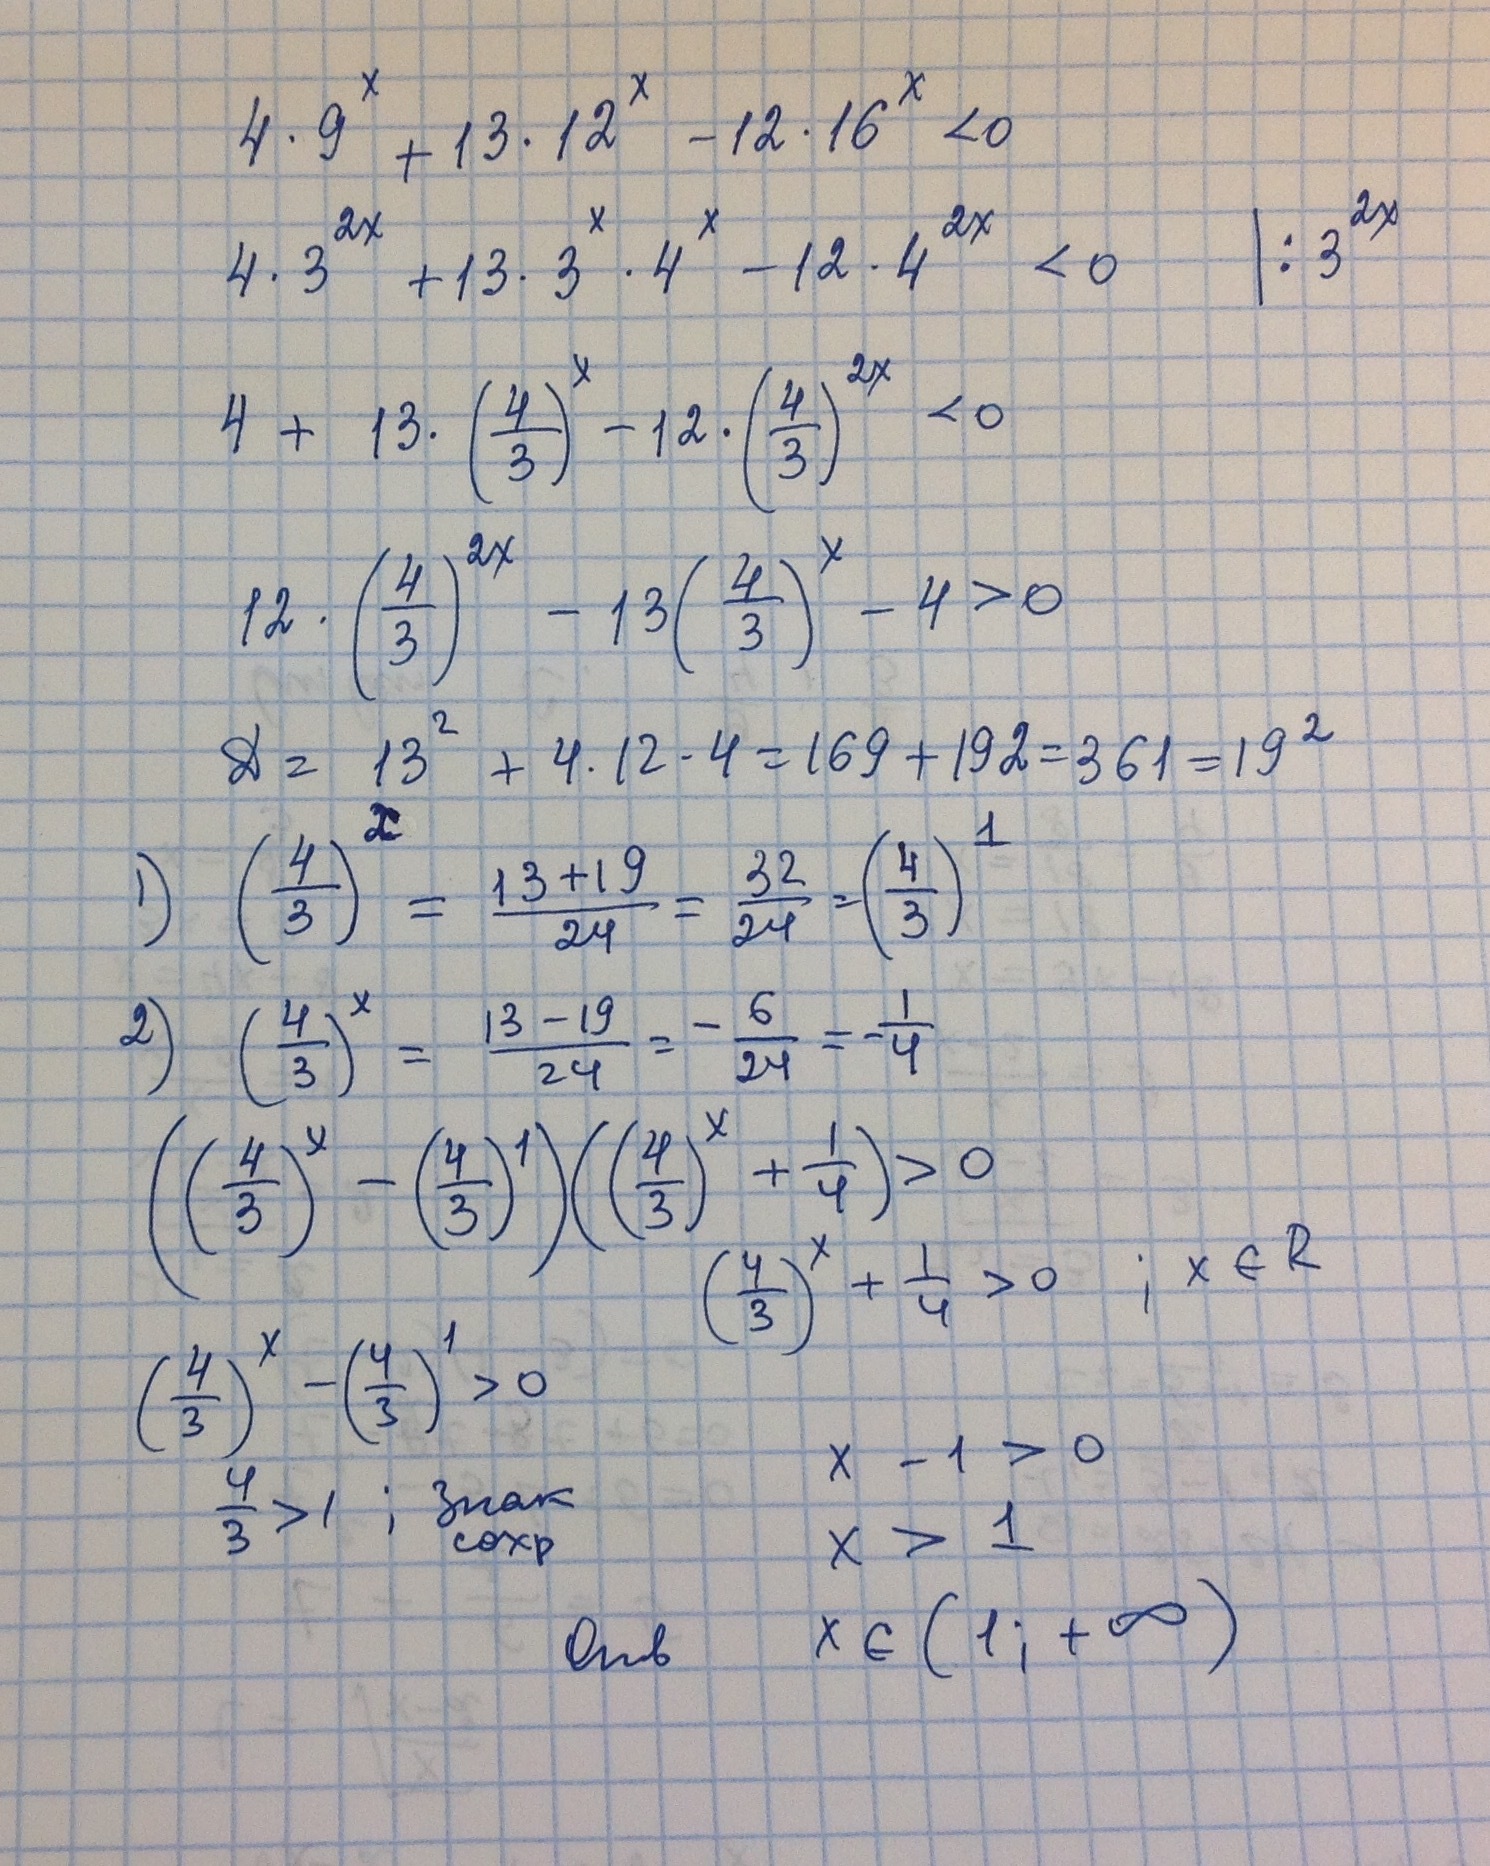 4 · 9^x + 13 · 12^x - 12 · 16^x < 0
4 · 3^{2x} + 13 · 3^x · 4^x - 12 · 4^{2x} < 0 | : 3^{2x}
4 + 13 · (4/3)^x - 12 · (4/3)^{2x} < 0
12 · (4/3)^{2x} - 13 (4/3)^x - 4 > 0
D = 13^2 + 4 · 12 · 4 = 169 + 192 = 361 = 19^2
1) (4/3)^x = (13+19)/24 = 32/24 = (4/3)^1
2) (4/3)^x = (13-19)/24 = -6/24 = -1/4
((4/3)^x - (4/3)^1)((4/3)^x + 1/4) > 0
(4/3)^x + 1/4 > 0 ; x ∈ R
(4/3)^x - (4/3)^1 > 0
4/3 > 1 ; знак
сохр
x - 1 > 0
x > 1
Отв x ∈ (1; +∞)